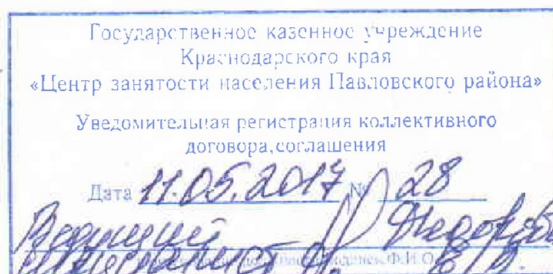 Государственное казенное учреждение
Краснодарского края
«Центр занятости населения Павловского района»
Уведомительная регистрация коллективного
договора,соглашения
Дата 11.05.2017 № 28
Ведущий